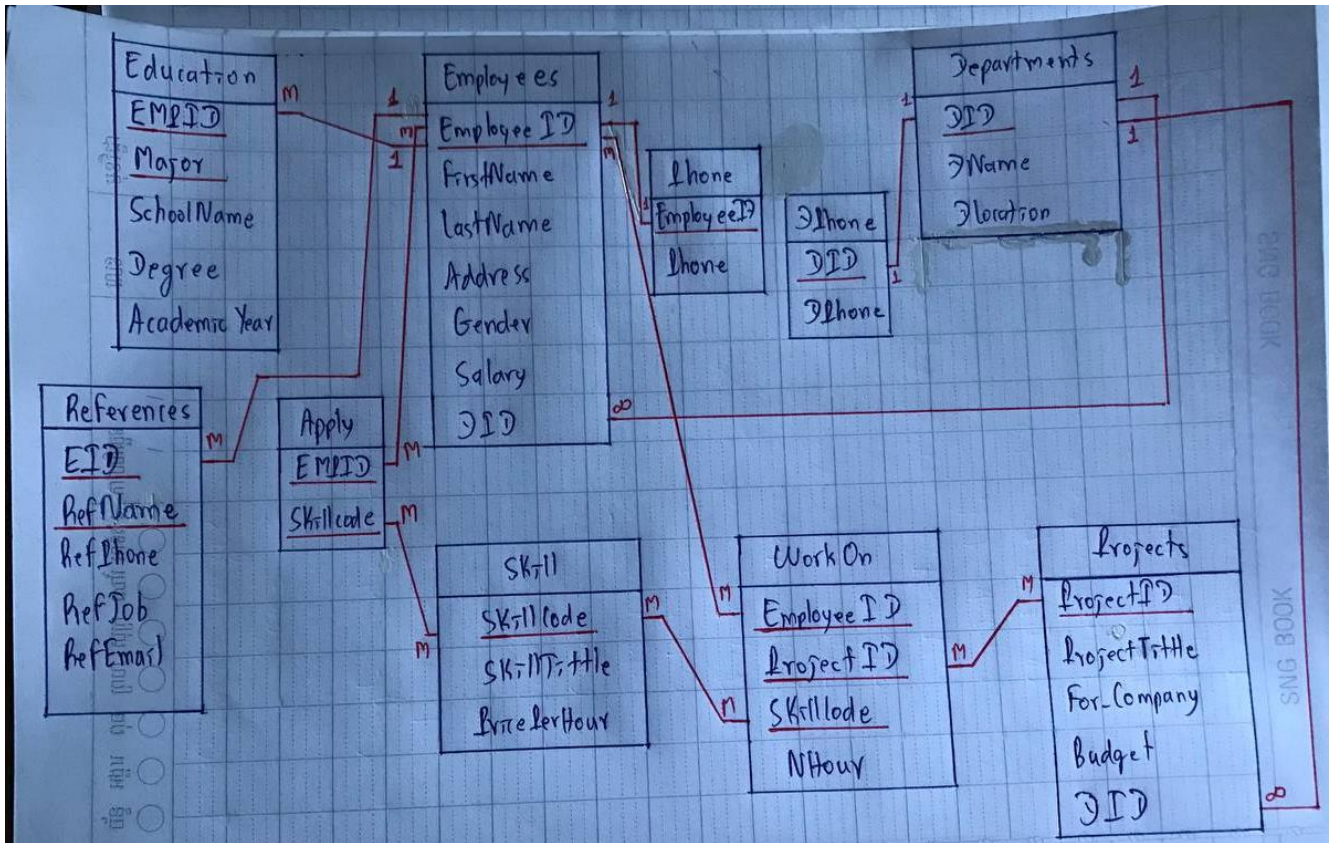 Education
EMPID
Major
SchoolName
Degree
Academic Year
M
1
Employees
Employee ID
FirstName
LastName
Address
Gender
Salary
DID
1
M
1
M
∞
Phone
EmployeeID
Phone
1
DPhone
DID
DPhone
1
1
Departments
DID
DName
Dlocation
1
1
References
EID
RefName
RefPhone
RefJob
RefEmail
M
Apply
EMPID
Skillcode
M
M
Skill
SkillCode
SkillTittle
PricePerHour
M
M
WorkOn
EmployeeID
ProjectID
SkillCode
NHour
M
M
M
Projects
ProjectID
ProjectTittle
For_Company
Budget
DID
M
∞
SNG BOOK
SNG BOOK